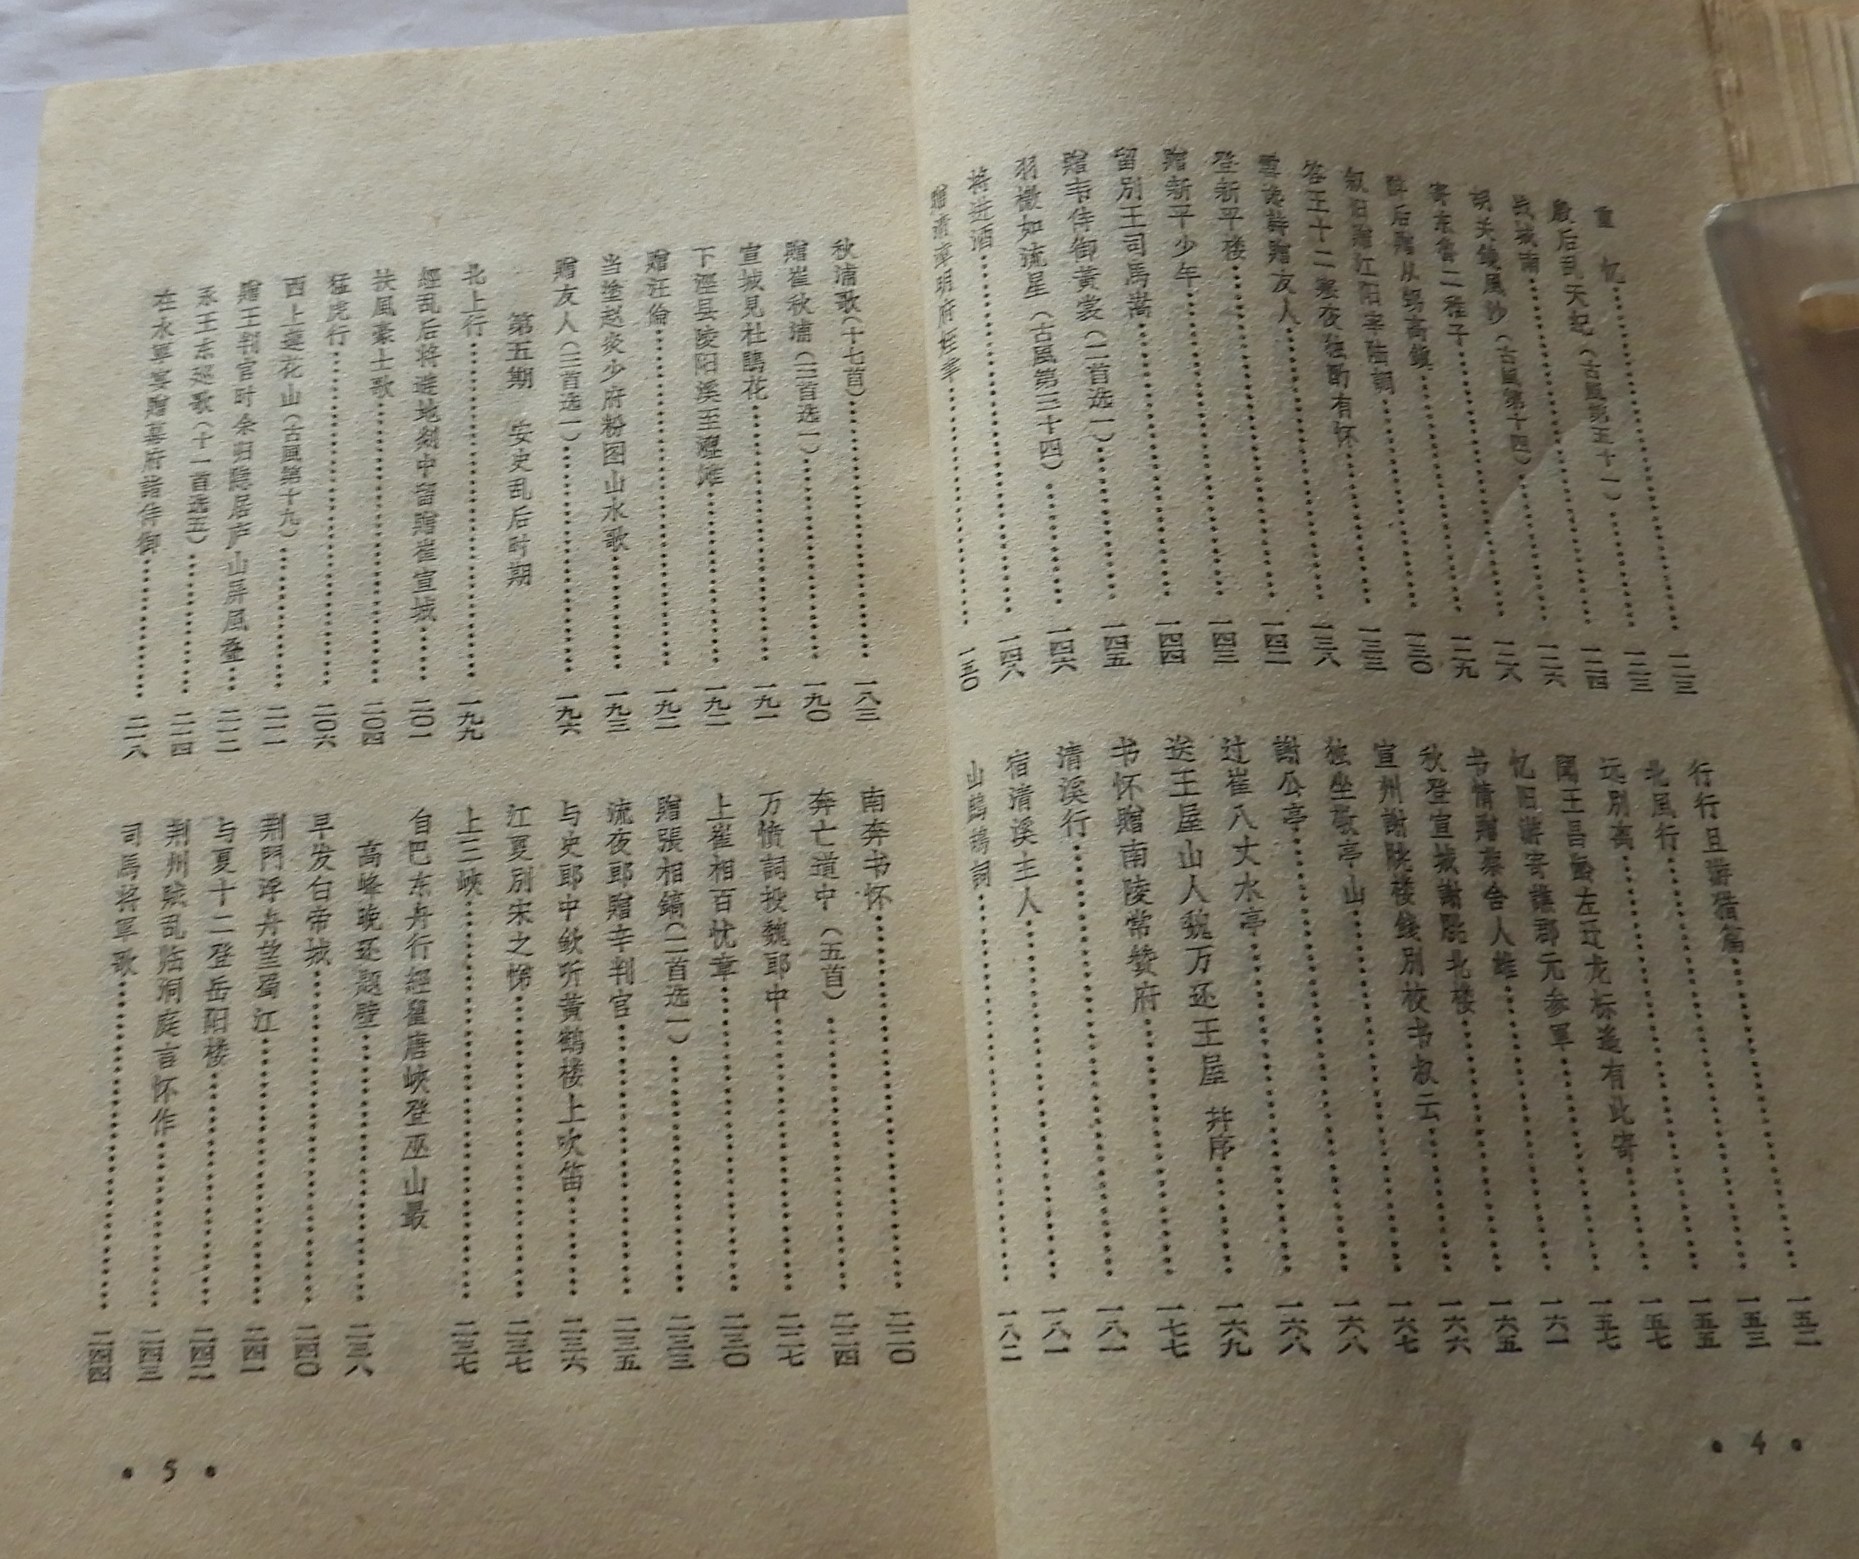 重 忆……一二三
殷后乱天紀(古風第五十一)……一二三
战城南……一二四
胡关饒風沙(古風第十四)……一二六
寄东鲁二稚子……一二八
醉后赠从甥高鎮……一二九
叙旧赠江阳宰陆調……一三〇
答王十二寒夜独酌有怀……一三三
雪讒詩赠友人……一三八
登新平楼……一四二
赠新平少年……一四三
留别王司馬嵩……一四四
赠韦侍御黃裳(二首选一)……一四五
羽檄如流星(古風第三十四)……一四六
将进酒……一四八
赠清漳明府侄聿……一五〇
行行且游猎篇……一五二
北風行……一五三
远别离……一五五
聞王昌齡左迁龙标遥有此寄……一五七
忆旧游寄譙郡元参軍……一五七
书情赠蔡舍人雄……一六一
秋登宣城謝脁北楼……一六五
宣州謝脁楼餞别校书叔云……一六六
独坐敬亭山……一六七
謝公亭……一六八
过崔八丈水亭……一六八
送王屋山人魏万还王屋 并序……一六九
书怀赠南陵常赞府……一七七
清溪行……一八一
宿清溪主人……一八一
山鷓鴣詞……一八二
• 4 •
秋浦歌(十七首)……一八三
赠崔秋浦(三首选一)……一九〇
宣城見杜鵑花……一九一
下涇县陵阳溪至澀滩……一九二
赠汪倫……一九二
当塗赵炎少府粉图山水歌……一九三
赠友人(三首选一)……一九六
第五期 安史乱后时期
北上行……一九九
經乱后将避地剡中留赠崔宣城……二〇一
扶風豪士歌……二〇四
猛虎行……二〇六
西上蓮花山(古風第十九)……二一一
赠王判官时余归隐居庐山屏風叠……二一二
永王东巡歌(十一首选五)……二一四
在水軍宴赠幕府諸侍御……二一八
南奔书怀……二二〇
奔亡道中(五首)……二二四
万愤詞投魏郎中……二二七
上崔相百忧章……二三〇
赠張相鎬(二首选一)……二三三
流夜郎赠辛判官……二三五
与史郎中欽听黃鹤楼上吹笛……二三六
江夏别宋之悌……二三七
上三峽……二三七
自巴东舟行經瞿唐峽登巫山最
高峰晚还題壁……二三八
早发白帝城……二四〇
荆門浮舟望蜀江……二四一
与夏十二登岳阳楼……二四二
荆州贼乱临洞庭言怀作……二四三
司馬将軍歌……二四四
• 5 •